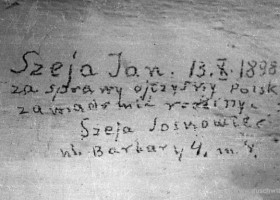 Szeja Jan. 13.X.1898
za sprawy ojczyzny Polsk
zawiadomić rodziny.
Szeja Sosnowiec
ul. Barbary 4. m.